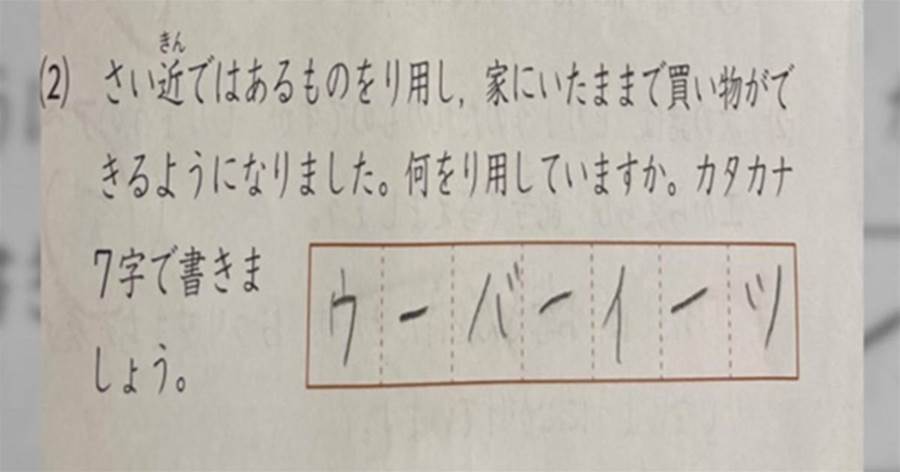 (2) さい近ではあるものをり用し，家にいたままで買い物がで
きん
きるようになりました。何をり用していますか。カタカナ
7字で書きま
しょう。
ウーバーイーツ